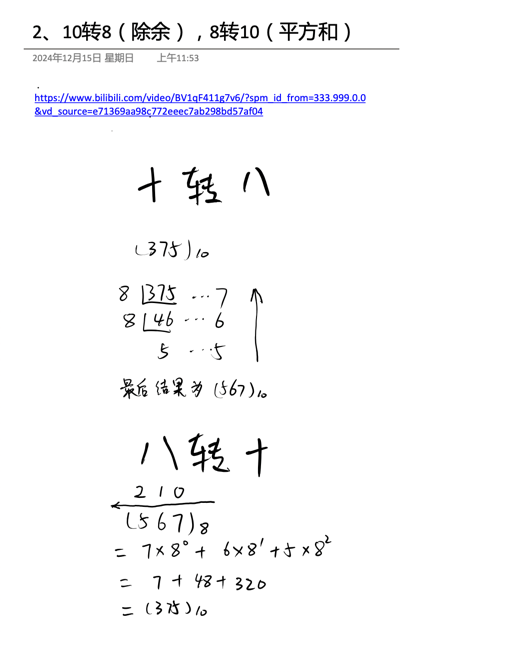 2、10转8（除余），8转10（平方和）
2024年12月15日 星期日 上午11:53
.
https://www.bilibili.com/video/BV1qF411g7v6/?spm_id_from=333.999.0.0
&vd_source=e71369aa98c772eeec7ab298bd57af04
十转八
(375)₁₀
8 375 ... 7
8 46 ... 6
5 ... 5
最后结果为 (567)₁₀
八转十
2 1 0
(567)₈
= 7×8⁰ + 6×8¹ + 5×8²
= 7 + 48 + 320
= (375)₁₀